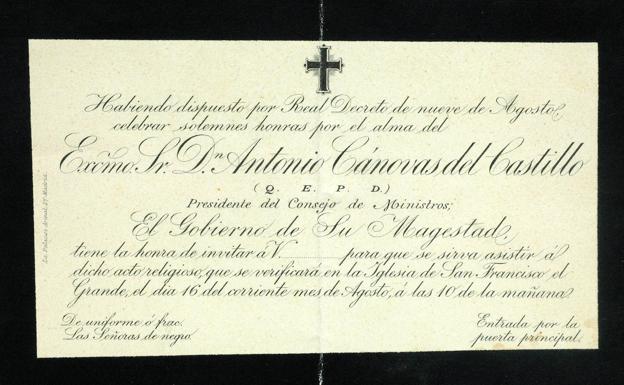 Habiendo dispuesto por Real Decreto de nueve de Agosto,
celebrar solemnes honras por el alma del
Excmo. Sr. Dn. Antonio Cánovas del Castillo
(Q. E. P. D.)
Presidente del Consejo de Ministros;
El Gobierno de Su Magestad,
tiene la honra de invitar á V. para que se sirva asistir á
dicho acto religioso, que se verificará en la Iglesia de San Francisco el
Grande, el dia 16 del corriente mes de Agosto, á las 10 de la mañana.
De uniforme ó frac.
Las Señoras de negro.
Entrada por la
puerta principal.